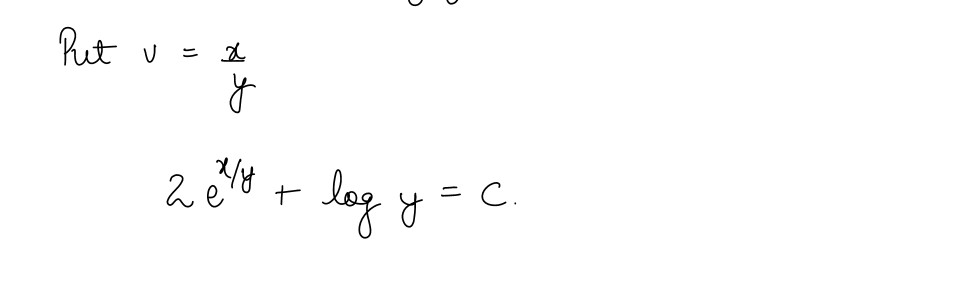 Put v = x/y
2 e^{x/y} + log y = c.